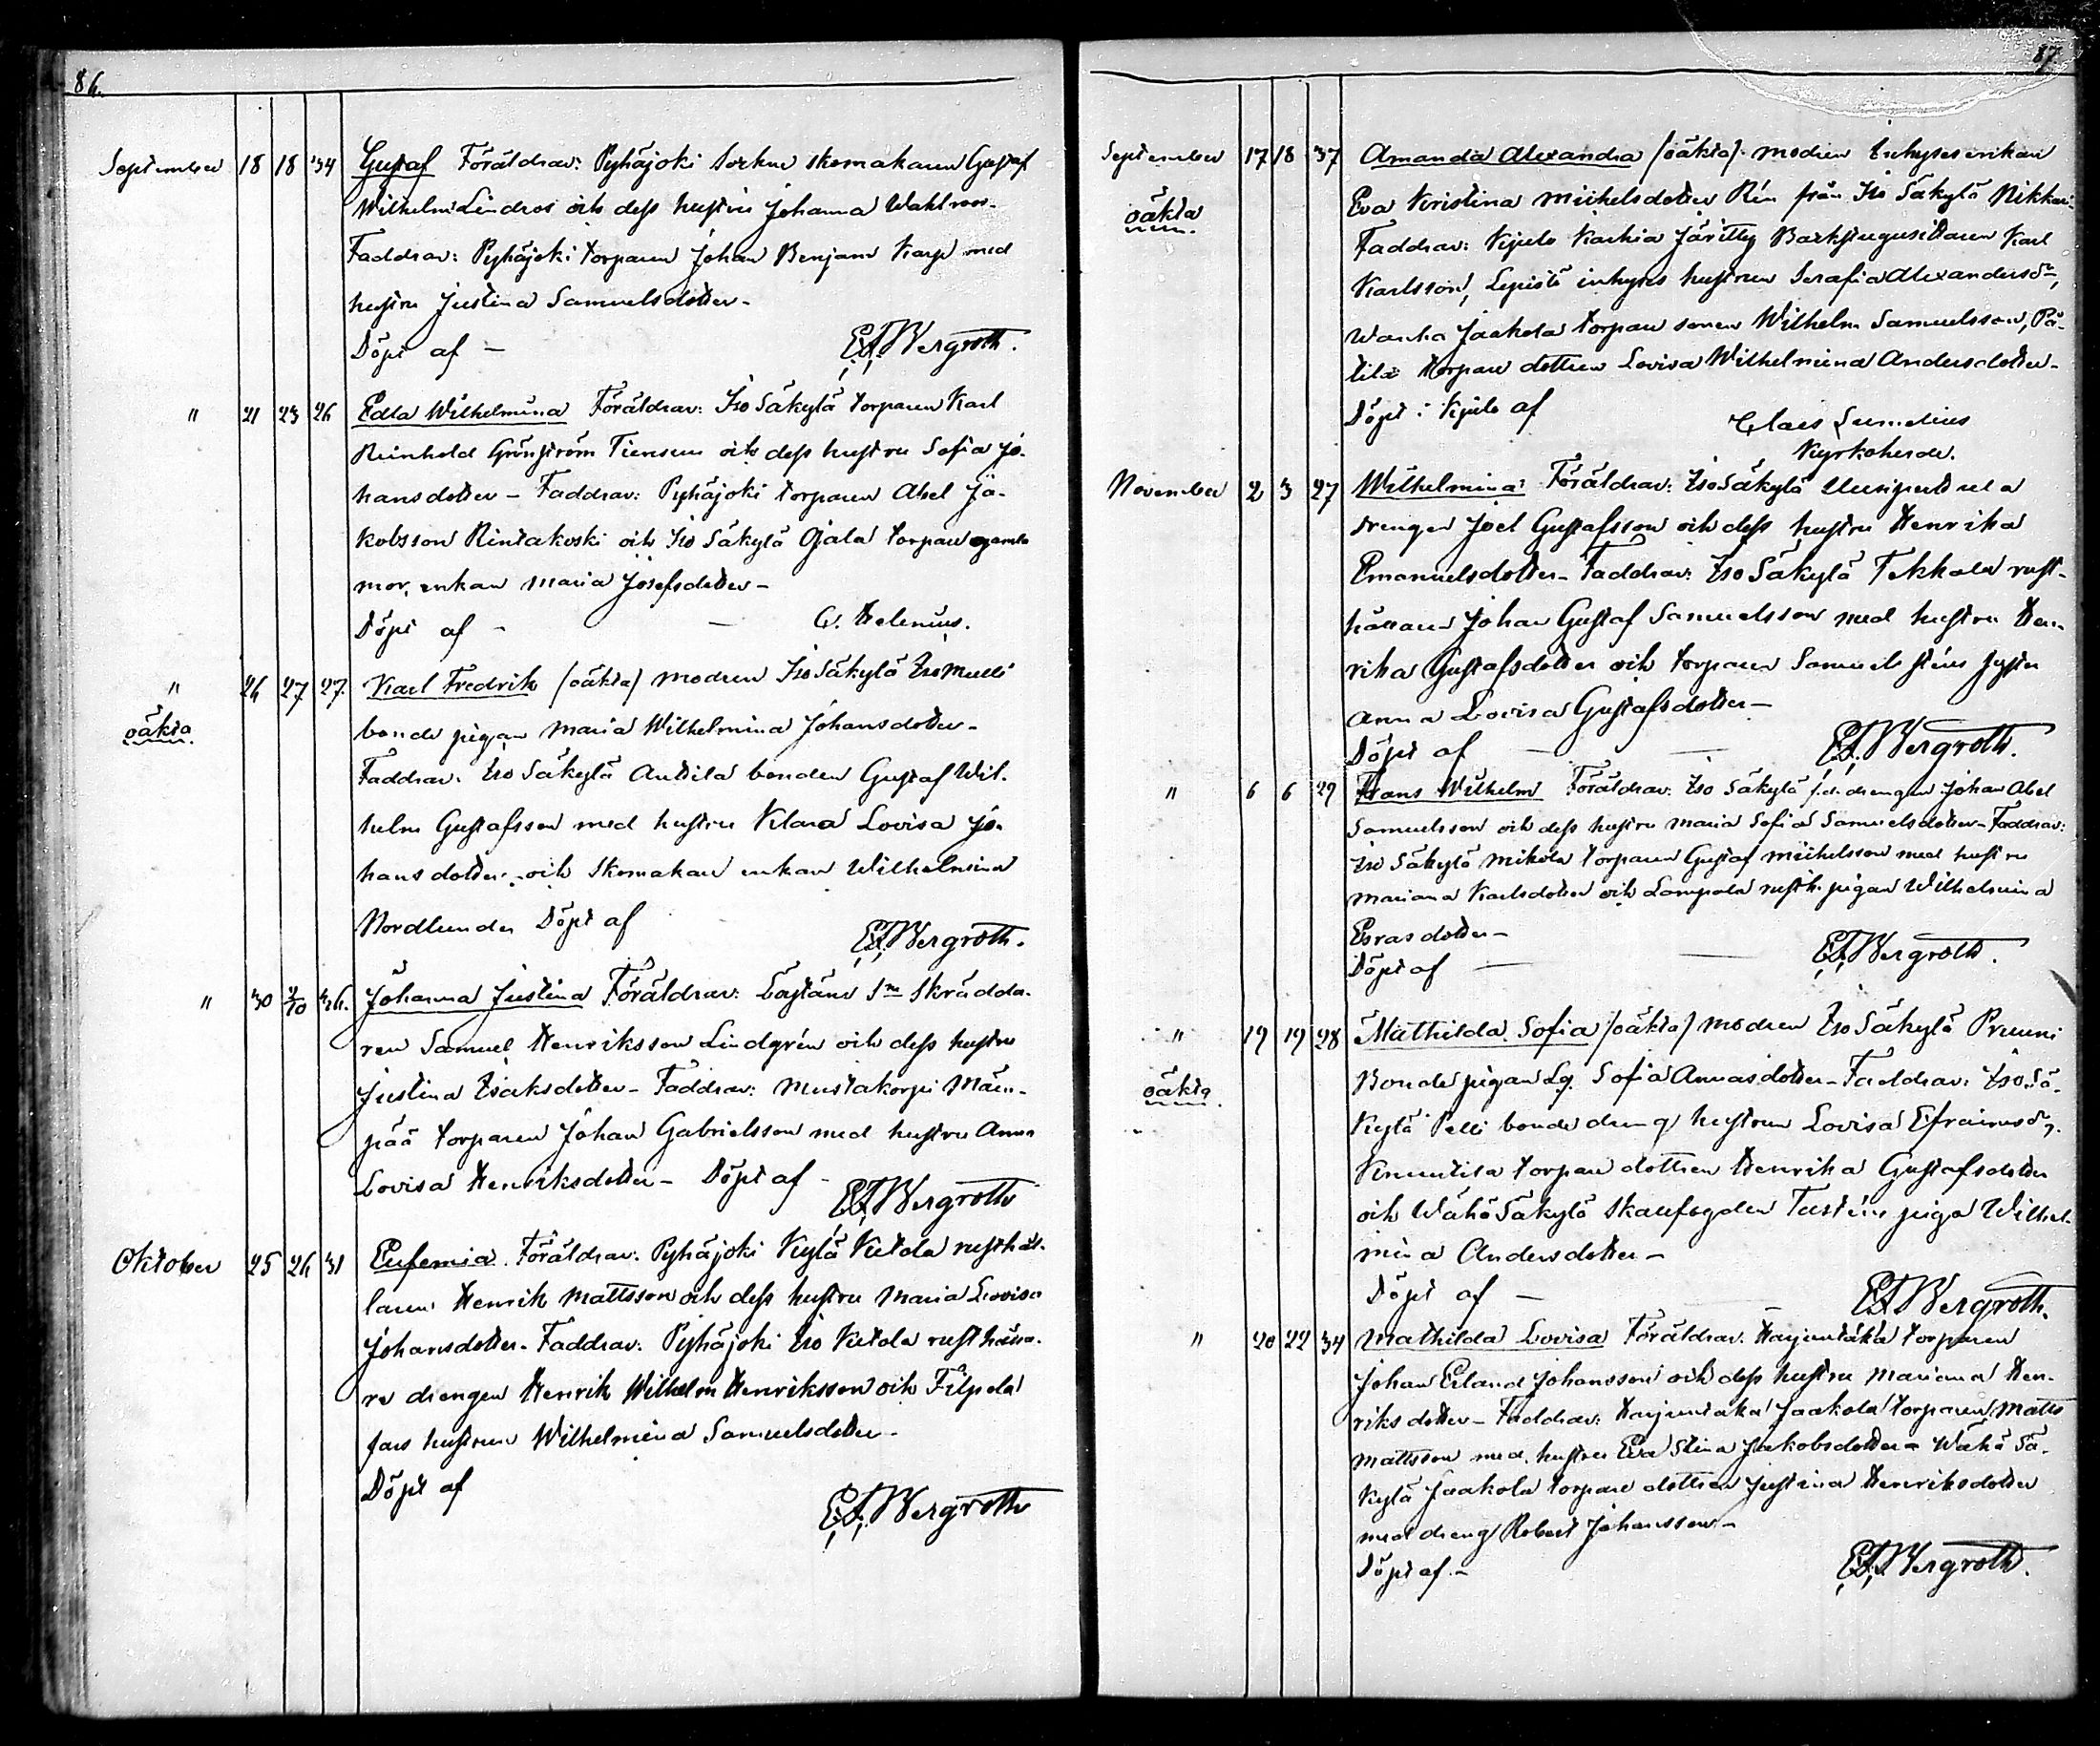 86.
September 18 18 34 Gustaf Föräldrar: Pyhäjoki Sorkun skomakaren Gustaf
Wilhelm Lindros och dess hustru Johanna Wahlroos.
Faddrar: Pyhäjoki torparen Johan Benjam Karp med
hustru Justina Samuelsdotter-
Döpt af - E.F. Bergroth.
" 21 23 26 Edla Wilhelmina Föräldrar: Iso Säkylä torparen Karl
Reinhold Grönström Tiensuu och dess hustru Sofia Jo-
hansdotter - Faddrar: Pyhäjoki torparen Abel Ja-
kobsson Rintakoski och Iso Säkylä Ojala torpare gamla
mor, enkan Maria Josefsdotter -
Döpt af - - Helenius.
" 26 27 27. Karl Fredrik (oäkta) modren Iso Säkylä Iso Mulli
oäkta.
bonde pigan Maria Wilhelmina Johansdotter-
Faddrar. Iso Säkylä Anttila bonden Gustaf Wil-
helm Gustafsson med hustru Klara Lovisa Jo-
hansdotter och Skomakare enkan Wilhelmina
Nordlund. Döpt af E.F. Bergroth.
" 30 2/10 36. Johanna Justina Föräldrar: Sn Skrädda-
ren Samuel Henriksson Lindgrén och dess hustru
Justina Isaksdotter - Faddrar: Mustakorpi Mäen-
pää torparen Johan Gabrielsson med hustru Anna
Lovisa Henriksdotter - Döpt af - E.F. Bergroth
Oktober 25 26 31 Eufemia. Föräldrar: Pyhäjoki Kylä Kutola rusthål-
laren Henrik Mattsson och dess hustru Maria Lovisa
Johansdotter. Faddrar: Pyhäjoki Iso Kutola rusthålla-
re drengen Henrik Wilhelm Henriksson och Filpola
fars hustrun Wilhelmina Samuelsdotter-
Döpt af E.F. Bergroth
87.
September 17 18 37 Amanda Alexandra (oäkta). modren Inhyses enkan
oäkta
Eva Kristina Michelsdotter Rén från Iso Säkylä Nikkari.
Faddrar: Kjulo Karhia Karl
Karlsson, Lepistö inhyses hustrun Serafia Alexandersdr,
Jaakola torpare sonen Wilhelm Samuelsson, Pä-
tilä torpare dottren Lovisa Wilhelmina Andersdotter-
Döpt i Kjulo af Claes Sumelius
Kyrkoherde.
November 2 3 27 Wilhelmina: Föräldrar: Iso Säkylä Uusiputula
drengen Joel Gustafsson och dess hustru Henrika
Emanuelsdotter- Faddrar: Iso Säkylä Tekkala rust-
hållaren Johan Gustaf Samuelsson med hustru Hen-
rika Gustafsdotter och torparen Samuel Sténs syster
Anna Lovisa Gustafsdotter-
Döpt af - - E.F. Bergroth.
" 6 6 29 Frans Wilhelm Föräldrar: Iso Säkylä f.d. drengen Johan Abel
Samuelsson och dess hustru Maria Sofia Samuelsdotter- Faddrar:
Iso Säkylä Mikola torparen Gustaf Michelsson med hustru
Mariana Karlsdotter och Lampola rusth. pigan Wilhelmina
Esrasdotter-
Döpt af - - E.F. Bergroth.
" 19 19 28 Mathilda Sofia (oäkta) modren Iso Säkylä Pruuni
oäkta.
Bonde pigan Lg. Sofia Annasdotter- Faddrar: Iso Sä-
kylä Pelli bonde dreng hustrun Lovisa Efraimsdr.
Knuutila torpare dottren Henrika Gustafsdotter
och Wähä Säkylä Skaufogden piga Wilhel-
mina Andersdotter -
Döpt af - - E.F. Bergroth.
" 20 22 34 Mathilda Lovisa Föräldrar. Harjuntaka torparen
Johan Erland Johansson och dess hustru Mariana Hen-
riksdotter- Faddrar: Harjuntaka Jaakola torparen Matts
Mattsson med hustru Eva Stina Jakobsdotter - Wähä Sä-
kylä Jaakola torpare dottren Justina Henriksdotter
med dreng Robert Johansson-
Döpt af - E.F. Bergroth.